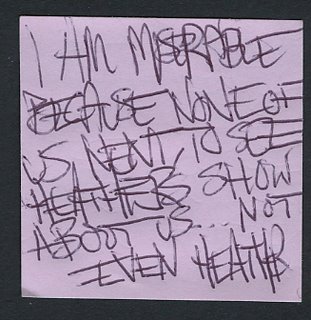 I AM MISERABLE
BECAUSE NONE OF
US WENT TO SEE
HEATHER'S SHOW
ABOUT US... NOT
EVEN HEATHER